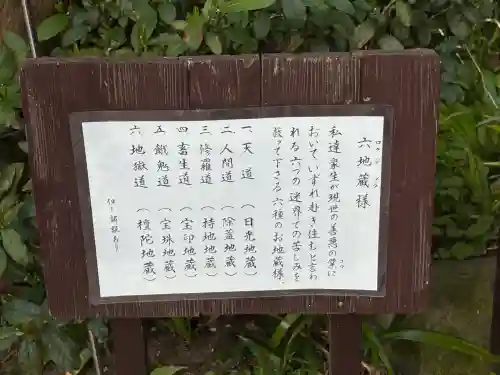 六地蔵様
ロクジゾウ
私達衆生が現世の善悪の業に
おいて、いずれ赴き住むと言わ
れる六つの迷界での苦しみを
救って下さる六種のお地蔵様。
一 天道 （日光地蔵）
二 人間道 （除蓋地蔵）
三 修羅道 （持地地蔵）
四 畜生道 （宝印地蔵）
五 餓鬼道 （宝珠地蔵）
六 地嶽道 （檀陀地蔵）
但し諸説あり